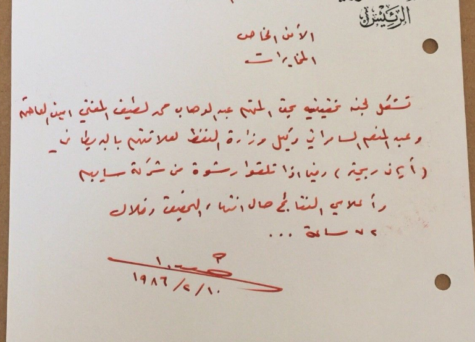 الرئيس
الأمن الخاص
المخابرات
تشكل لجنة تحقيقية بحق المتهم عبد الوهاب محمد لطيف المفتي امين العاصمة
وعبد المنعم السامرائي وكيل وزارة النفط لعلاقتهم بالبريطاني
(أيان ريجية) وفيما اذا تلقوا رشوة من شركة سايبم
وأعلامي النتائج حال انتهاء التحقيق وخلال
٧٢ ساعة ...
١٩٨٦/٢/١٠